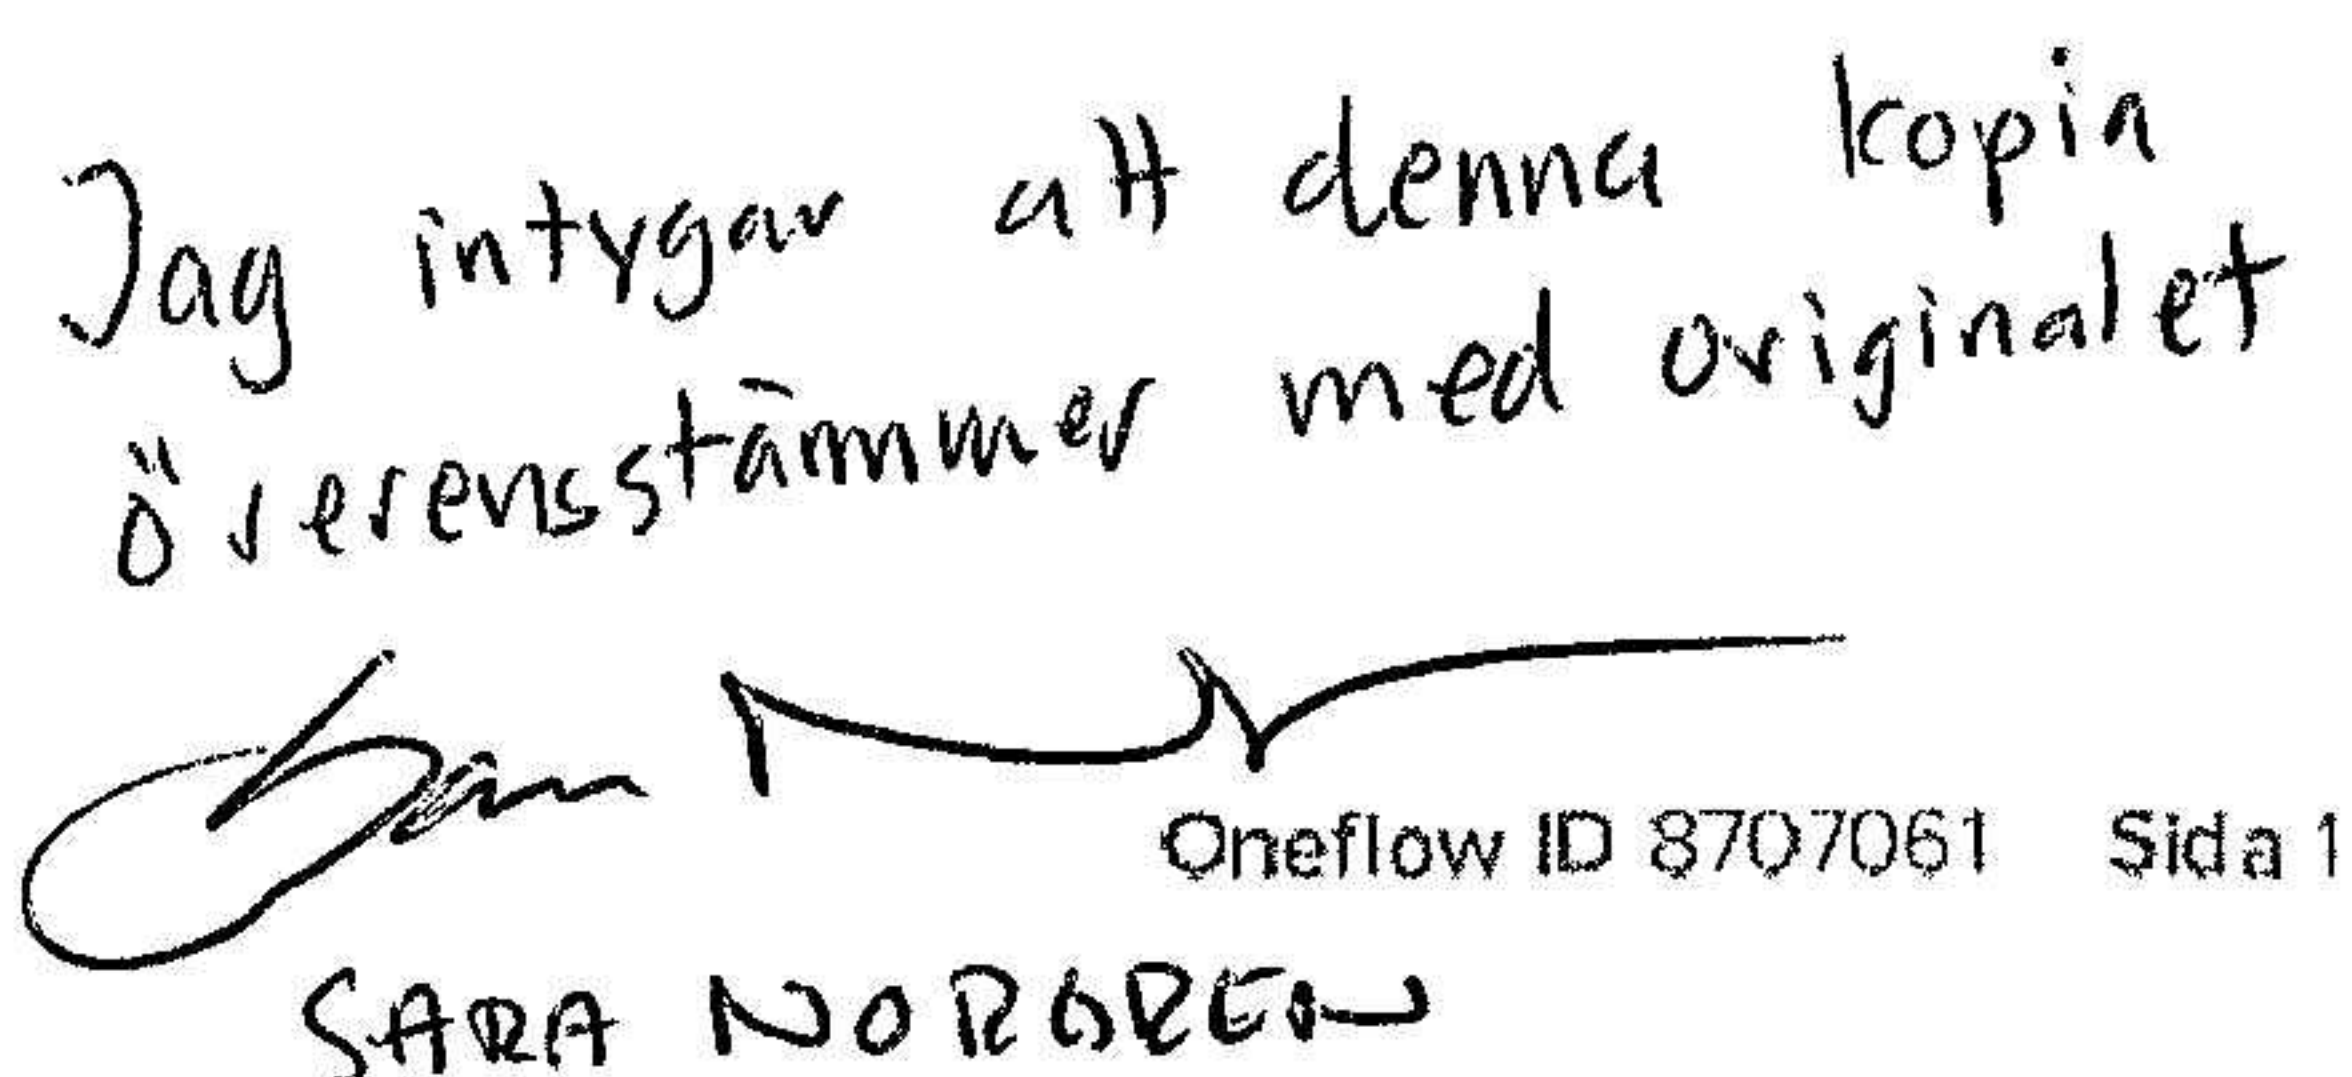 Jag intygar att denna kopia
överensstämmer med originalet
Oneflow ID 8707061 Sida 1
SARA NORGREN